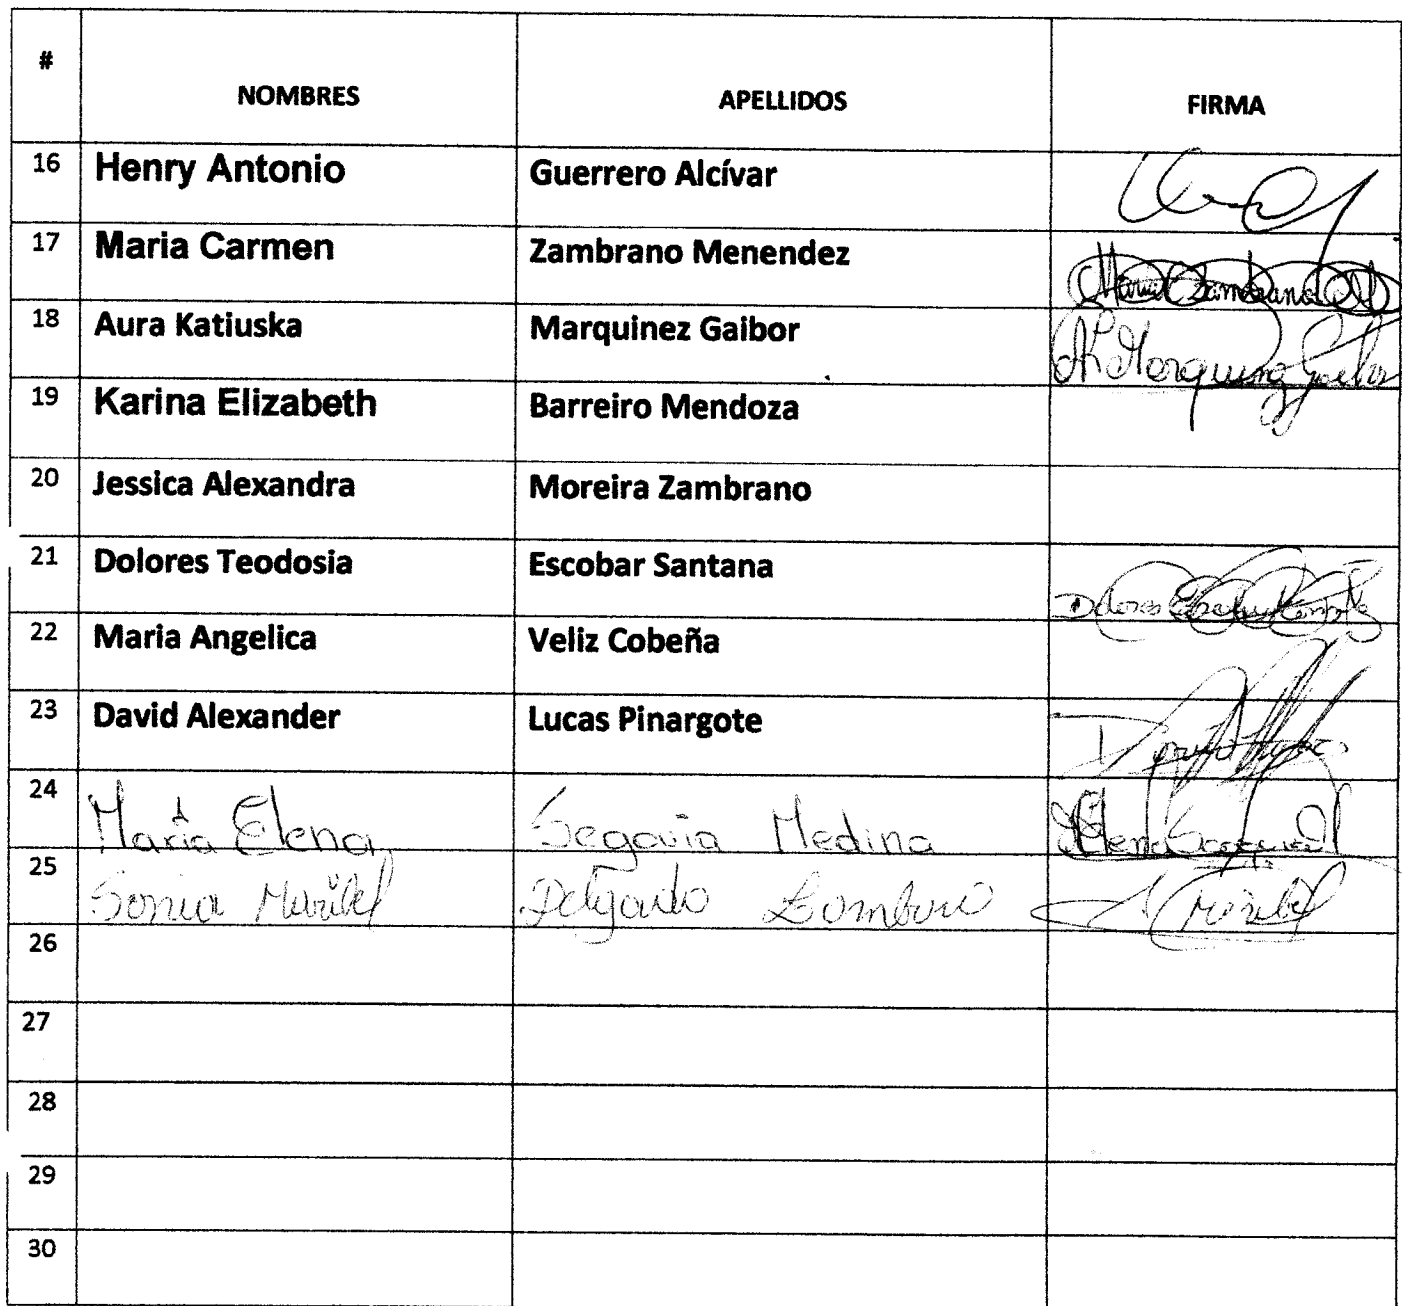 #
NOMBRES APELLIDOS FIRMA
16 Henry Antonio Guerrero Alcívar
17 Maria Carmen Zambrano Menendez Maria Zambrano
18 Aura Katiuska Marquinez Gaibor
19 Karina Elizabeth Barreiro Mendoza
20 Jessica Alexandra Moreira Zambrano
21 Dolores Teodosia Escobar Santana Dolores
22 Maria Angelica Veliz Cobeña
23 David Alexander Lucas Pinargote
24 Maria Elena Segovia Medina Elena
25 Sonia Maribel Delgado
26
27
28
29
30